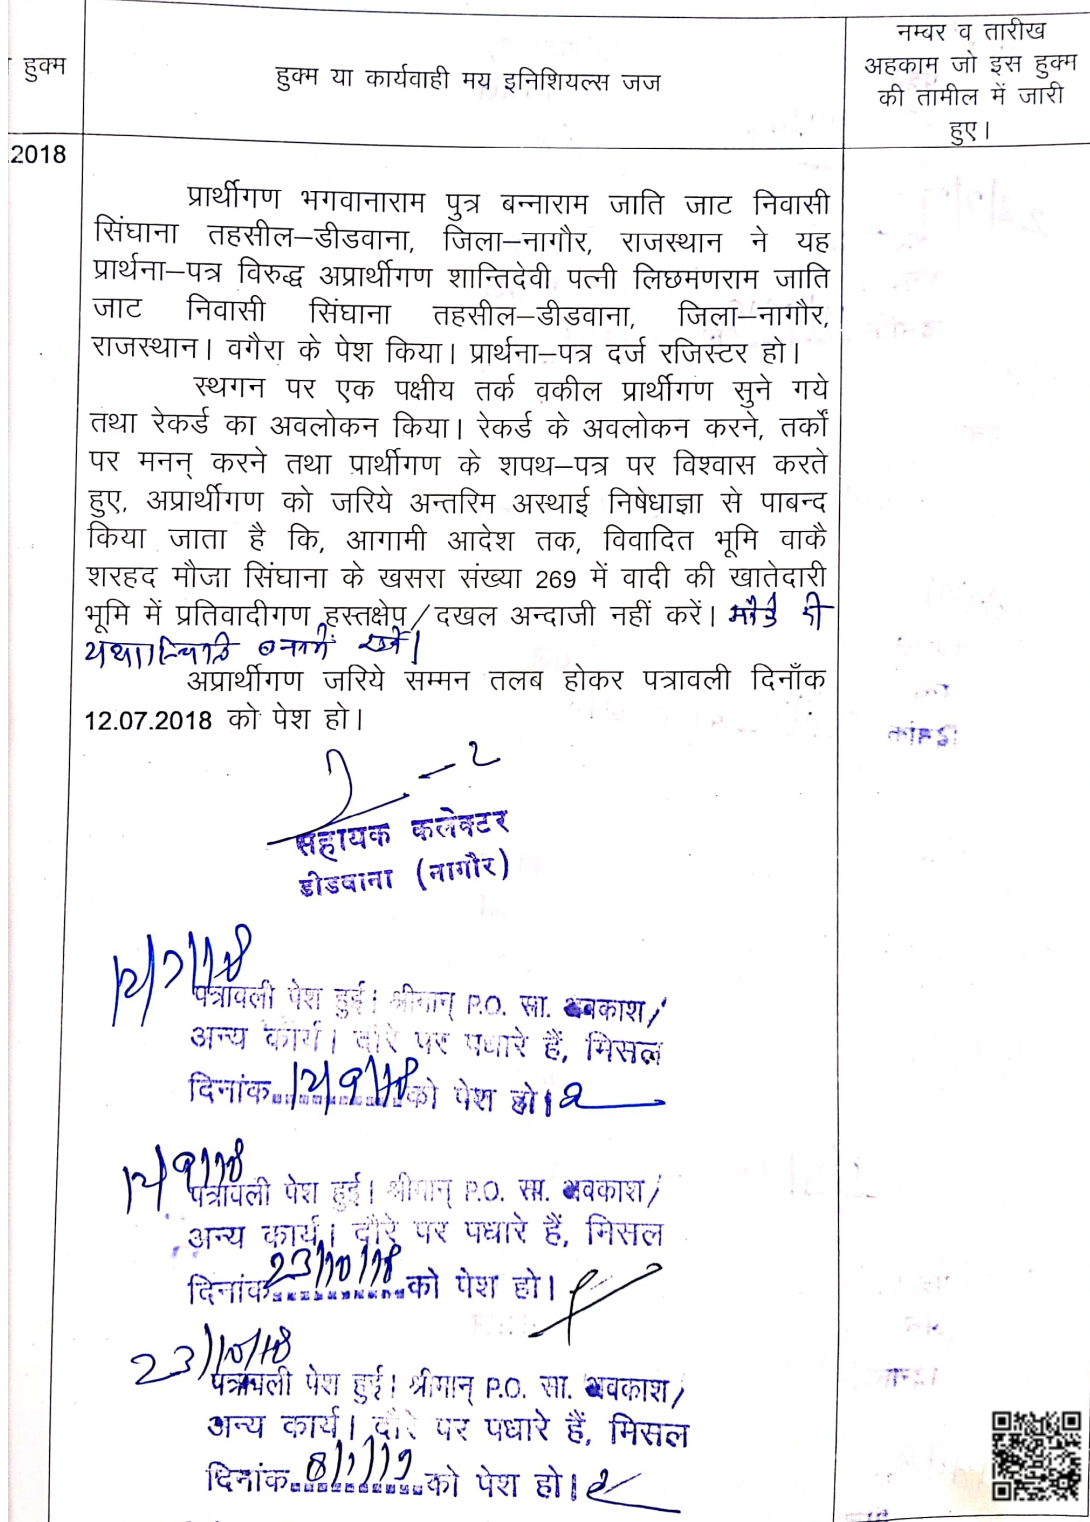 हुक्म
हुक्म या कार्यवाही मय इनिशियल्स जज
नम्वर व तारीख
अहकाम जो इस हुक्म
की तामील में जारी
हुए।
.2018
प्रार्थीगण भगवानाराम पुत्र बन्नाराम जाति जाट निवासी
सिंघाना तहसील–डीडवाना, जिला–नागौर, राजस्थान ने यह
प्रार्थना–पत्र विरुद्ध अप्रार्थीगण शान्तिदेवी पत्नी लिछमणराम जाति
जाट निवासी सिंघाना तहसील–डीडवाना, जिला–नागौर,
राजस्थान। वगैरा के पेश किया। प्रार्थना–पत्र दर्ज रजिस्टर हो।
स्थगन पर एक पक्षीय तर्क वकील प्रार्थीगण सुने गये
तथा रेकर्ड का अवलोकन किया। रेकर्ड के अवलोकन करने, तर्कों
पर मनन् करने तथा प्रार्थीगण के शपथ–पत्र पर विश्वास करते
हुए, अप्रार्थीगण को जरिये अन्तरिम अस्थाई निषेधाज्ञा से पाबन्द
किया जाता है कि, आगामी आदेश तक, विवादित भूमि वाकै
शरहद मौजा सिंघाना के खसरा संख्या 269 में वादी की खातेदारी
भूमि में प्रतिवादीगण हस्तक्षेप/दखल अन्दाजी नहीं करें। मौके की
यथास्थिति बनाये रखें।
अप्रार्थीगण जरिये सम्मन तलब होकर पत्रावली दिनाँक
12.07.2018 को पेश हो।
सहायक कलेक्टर
डीडवाना (नागौर)
12/7/18
पत्रावली पेश हुई। श्रीमान् P.O. सा. अवकाश/
अन्य कार्य। दौरे पर पधारे हैं, मिसल
दिनांक 12/9/18 को पेश हो।
12/9/18
पत्रावली पेश हुई। श्रीमान् P.O. सा. अवकाश/
अन्य कार्य। दौरे पर पधारे हैं, मिसल
दिनांक 23/10/18 को पेश हो।
23/10/18
पत्रावली पेश हुई। श्रीमान् P.O. सा. अवकाश/
अन्य कार्य। दौरे पर पधारे हैं, मिसल
दिनांक 8/1/19 को पेश हो।